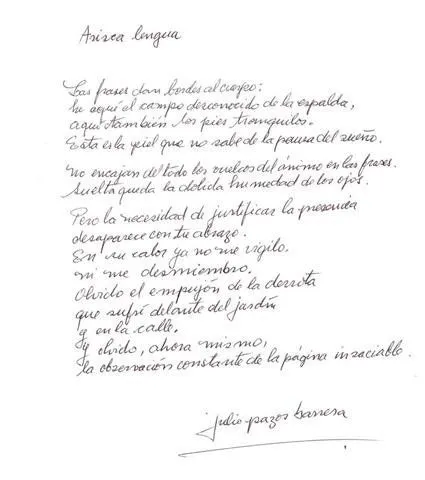 Arisca lengua
Las frases dan bordes al cuerpo:
he aquí el campo desconocido de la espalda,
aquí también los pies tranquilos.
Esta es la piel que no sabe de la pausa del sueño.
No encajan del todo los vuelcos del ánimo en las frases.
Suelta queda la dolida humedad de los ojos.
Pero la necesidad de justificar la presencia
desaparece con tu abrazo.
En su calor ya no me vigilo.
ni me desmiembro.
Olvido el empujón de la derrota
que sufrí delante del jardín
y en la calle.
Y olvido, ahora mismo,
la observación constante de la página insaciable.
julio pazos barrera